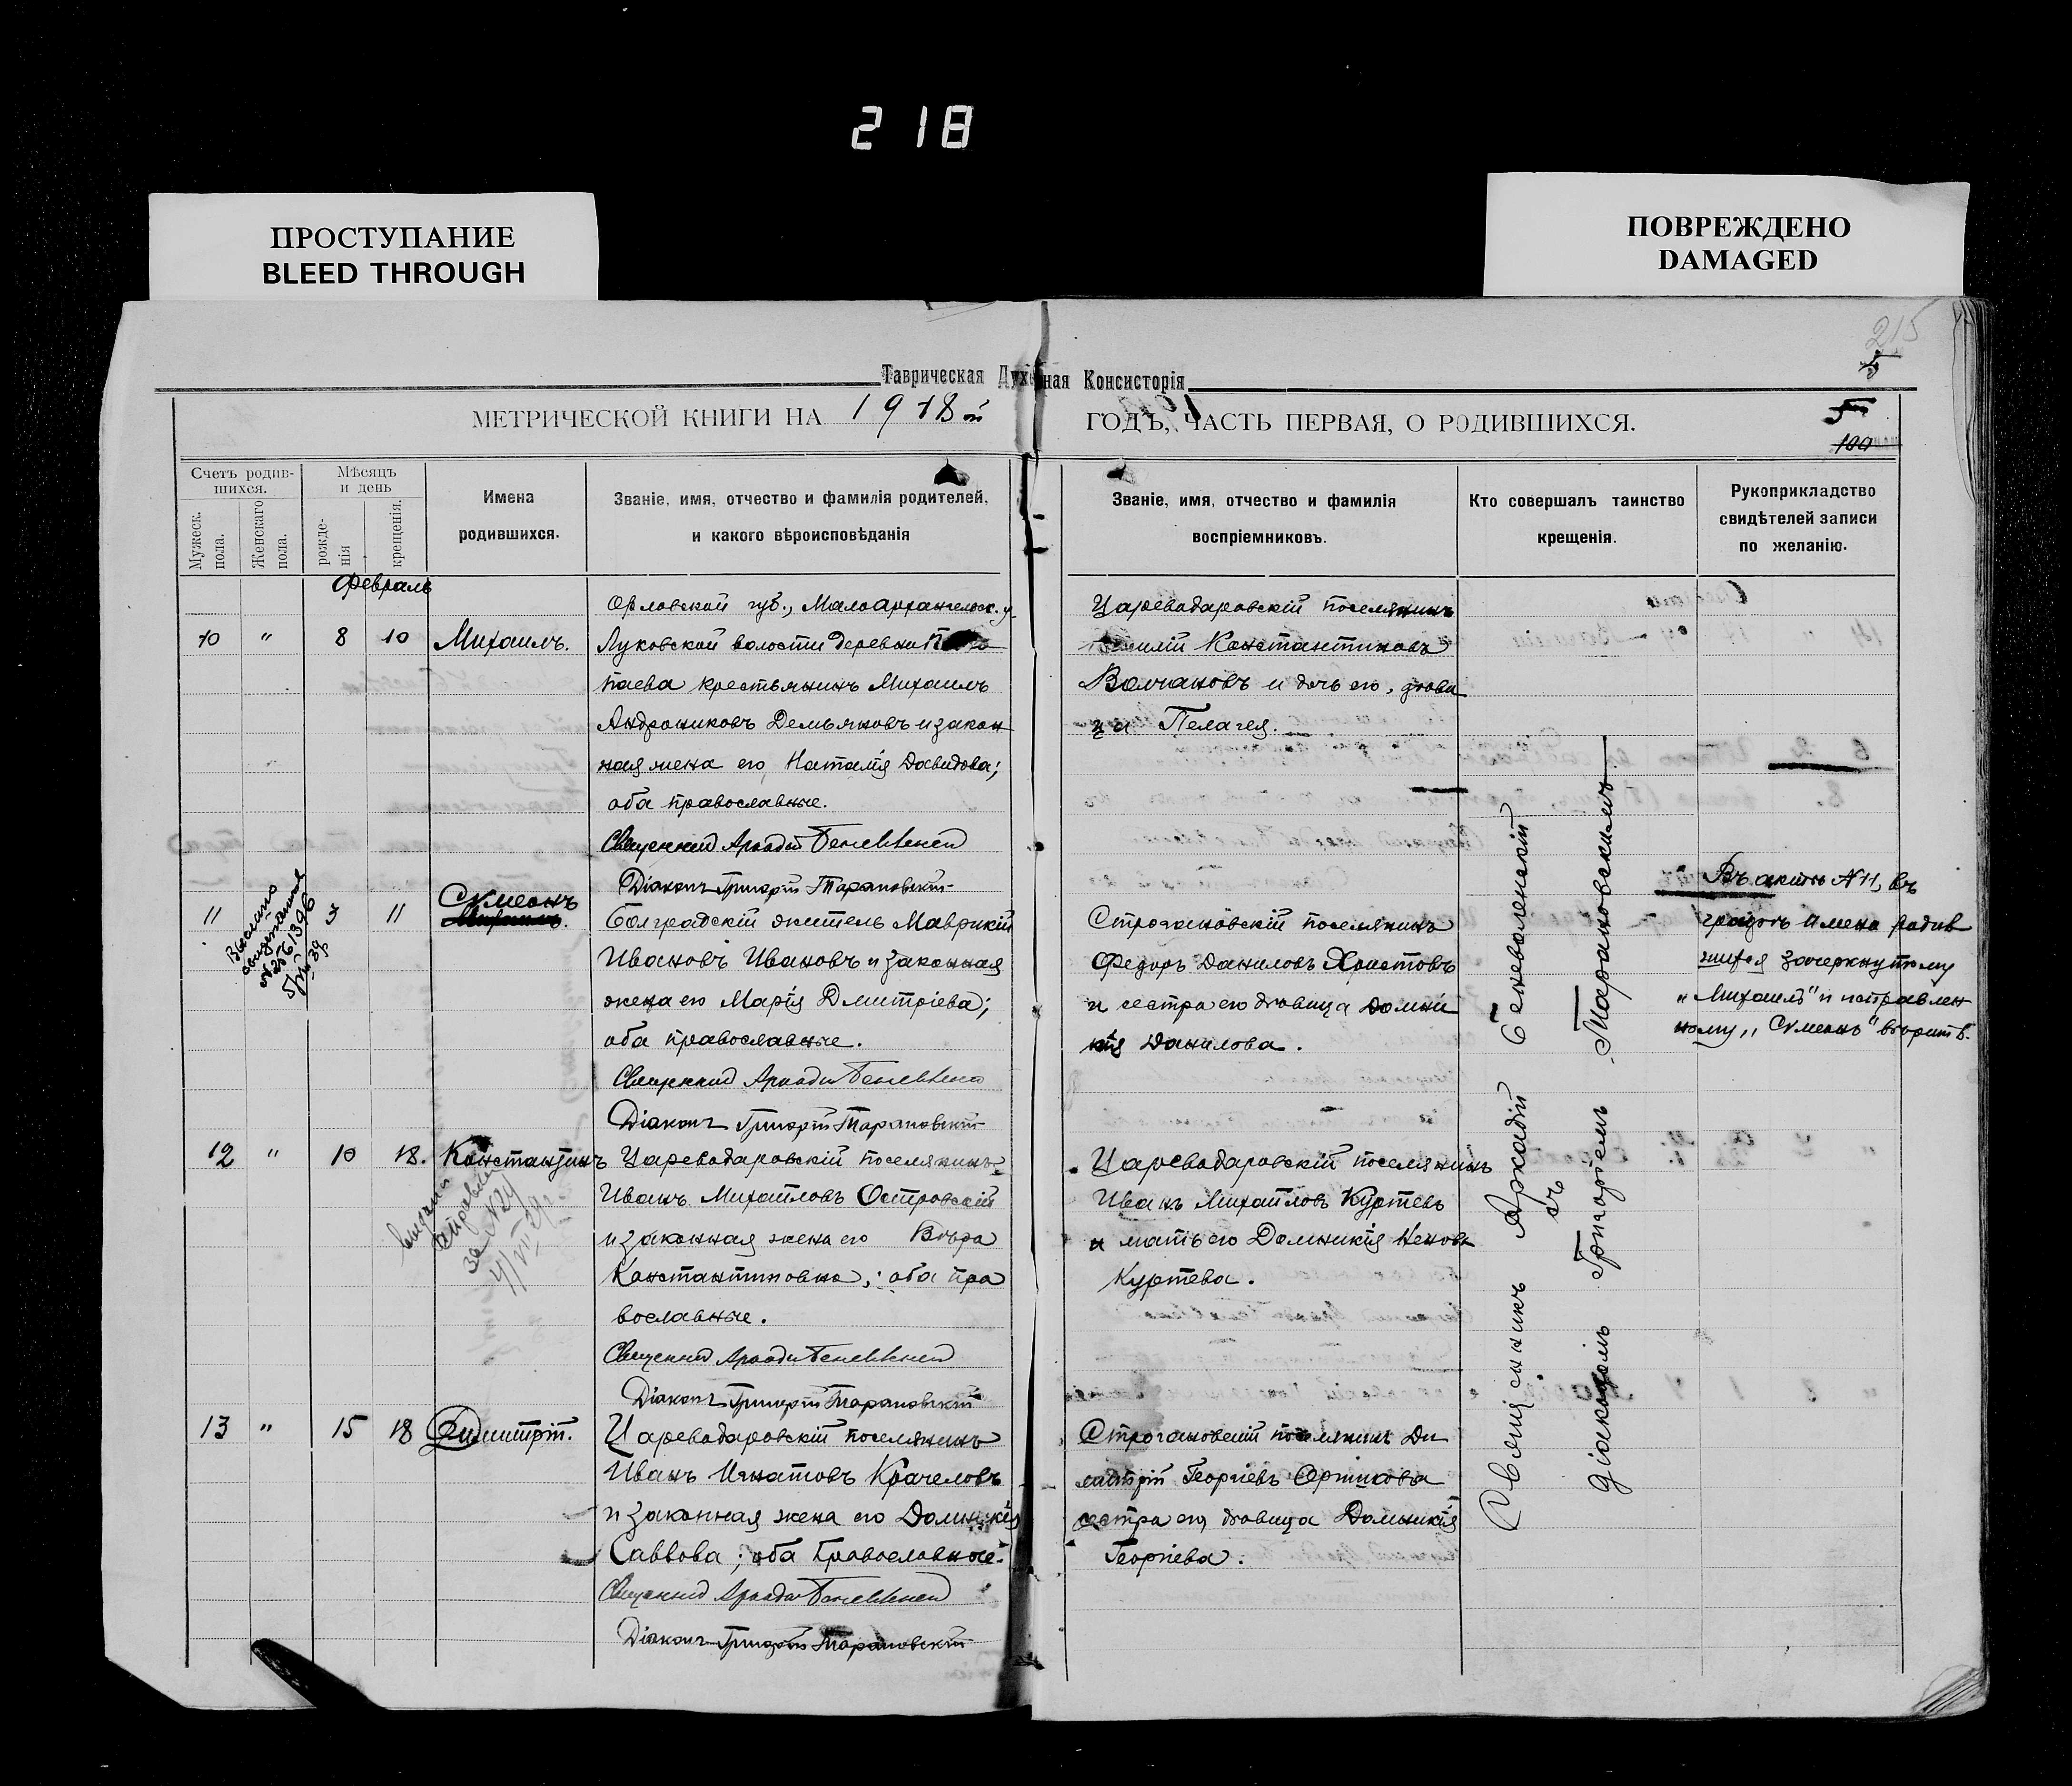 218
ПРОСТУПАНИЕ
BLEED THROUGH
ПОВРЕЖДЕНО
DAMAGED
215
5
Таврическая Духовная Консисторія
МЕТРИЧЕСКОЙ КНИГИ НА 1918 й ГОДЪ, ЧАСТЬ ПЕРВАЯ, О РОДИВШИХСЯ.
5
100
Счетъ родив-
шихся.
Мужеск. пола.
Женскаго пола.
Мѣсяцъ
и день
рожде-
нія
крещенія.
Имена
родившихся.
Званіе, имя, отчество и фамилія родителей,
и какого вѣроисповѣданія
Званіе, имя, отчество и фамилія
воспріемниковъ.
Кто совершалъ таинство
крещенія.
Рукоприкладство
свидѣтелей записи
по желанію.
Февраль
10 " 8 10 Михаилъ.
Орловской губ., Малоархангельск. у.
Луковской волости деревни
паева крестьянинъ Михаилъ
Андрониковъ Демьяновъ и закон
ная жена его Наталія Давидова;
оба православные.
Священникъ Аркадій Беневоленскій
Діаконъ Григорій Тарановскій
Цареводаровскій поселянинъ
Константиновъ
Волчановъ и дочь его, дѣви
ца Пелагея.
11 11 Сѵмеонъ
Михаилъ.
Болградскій житель Маврикій
Ивановъ Ивановъ и законная
жена его Марія Дмитріева;
оба православные.
Священникъ Аркадій Беневоленскій
Діаконъ Григорій Тарановскій
Строгановскій поселянинъ
Федоръ Даниловъ Христовъ
и сестра его дѣвица Домни
кія Данилова.
Въ актѣ № 11, въ
графѣ имена родив
шихся зачеркнутому
"Михаилъ" и исправлен
ному "Сѵмеонъ" вѣрить.
12 " 10 18. Константинъ
Цареводаровскій поселянинъ
Иванъ Михайловъ Островскій
и законная жена его Вѣра
Константиновна; оба пра
вославные.
Священникъ Аркадій Беневоленскій
Діаконъ Григорій Тарановскій
Цареводаровскій поселянинъ
Иванъ Михайловъ Куртевъ
и мать его Домникія Ненова
Куртева.
за №24
13 " 15 18 Димитрій.
Цареводаровскій поселянинъ
Иванъ Игнатовъ Крачеловъ
и законная жена его Домникія
Саввова; оба православные.
Священникъ Аркадій Беневоленскій
Діаконъ Григорій Тарановскій
Строгановскій поселянинъ Ди
митрій Георгіевъ
сестра его, дѣвица Домникія
Георгіева.
Священникъ Аркадій Беневоленскій
съ
діакономъ Григоріемъ Тарановскимъ